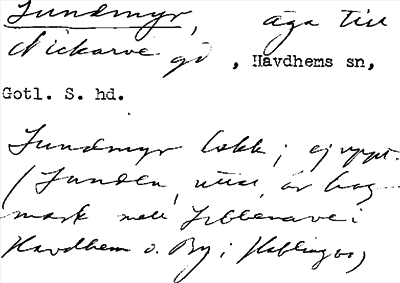 Lundmyr, äga till
Nickarve gd, Havdhems sn,
Gotl. S. hd.
Lundmyr lokk; ej uppt.
(Lunden, utt., är hag-
mark mell. Libbenarve i
Havdhem o. By i Hablingbo)